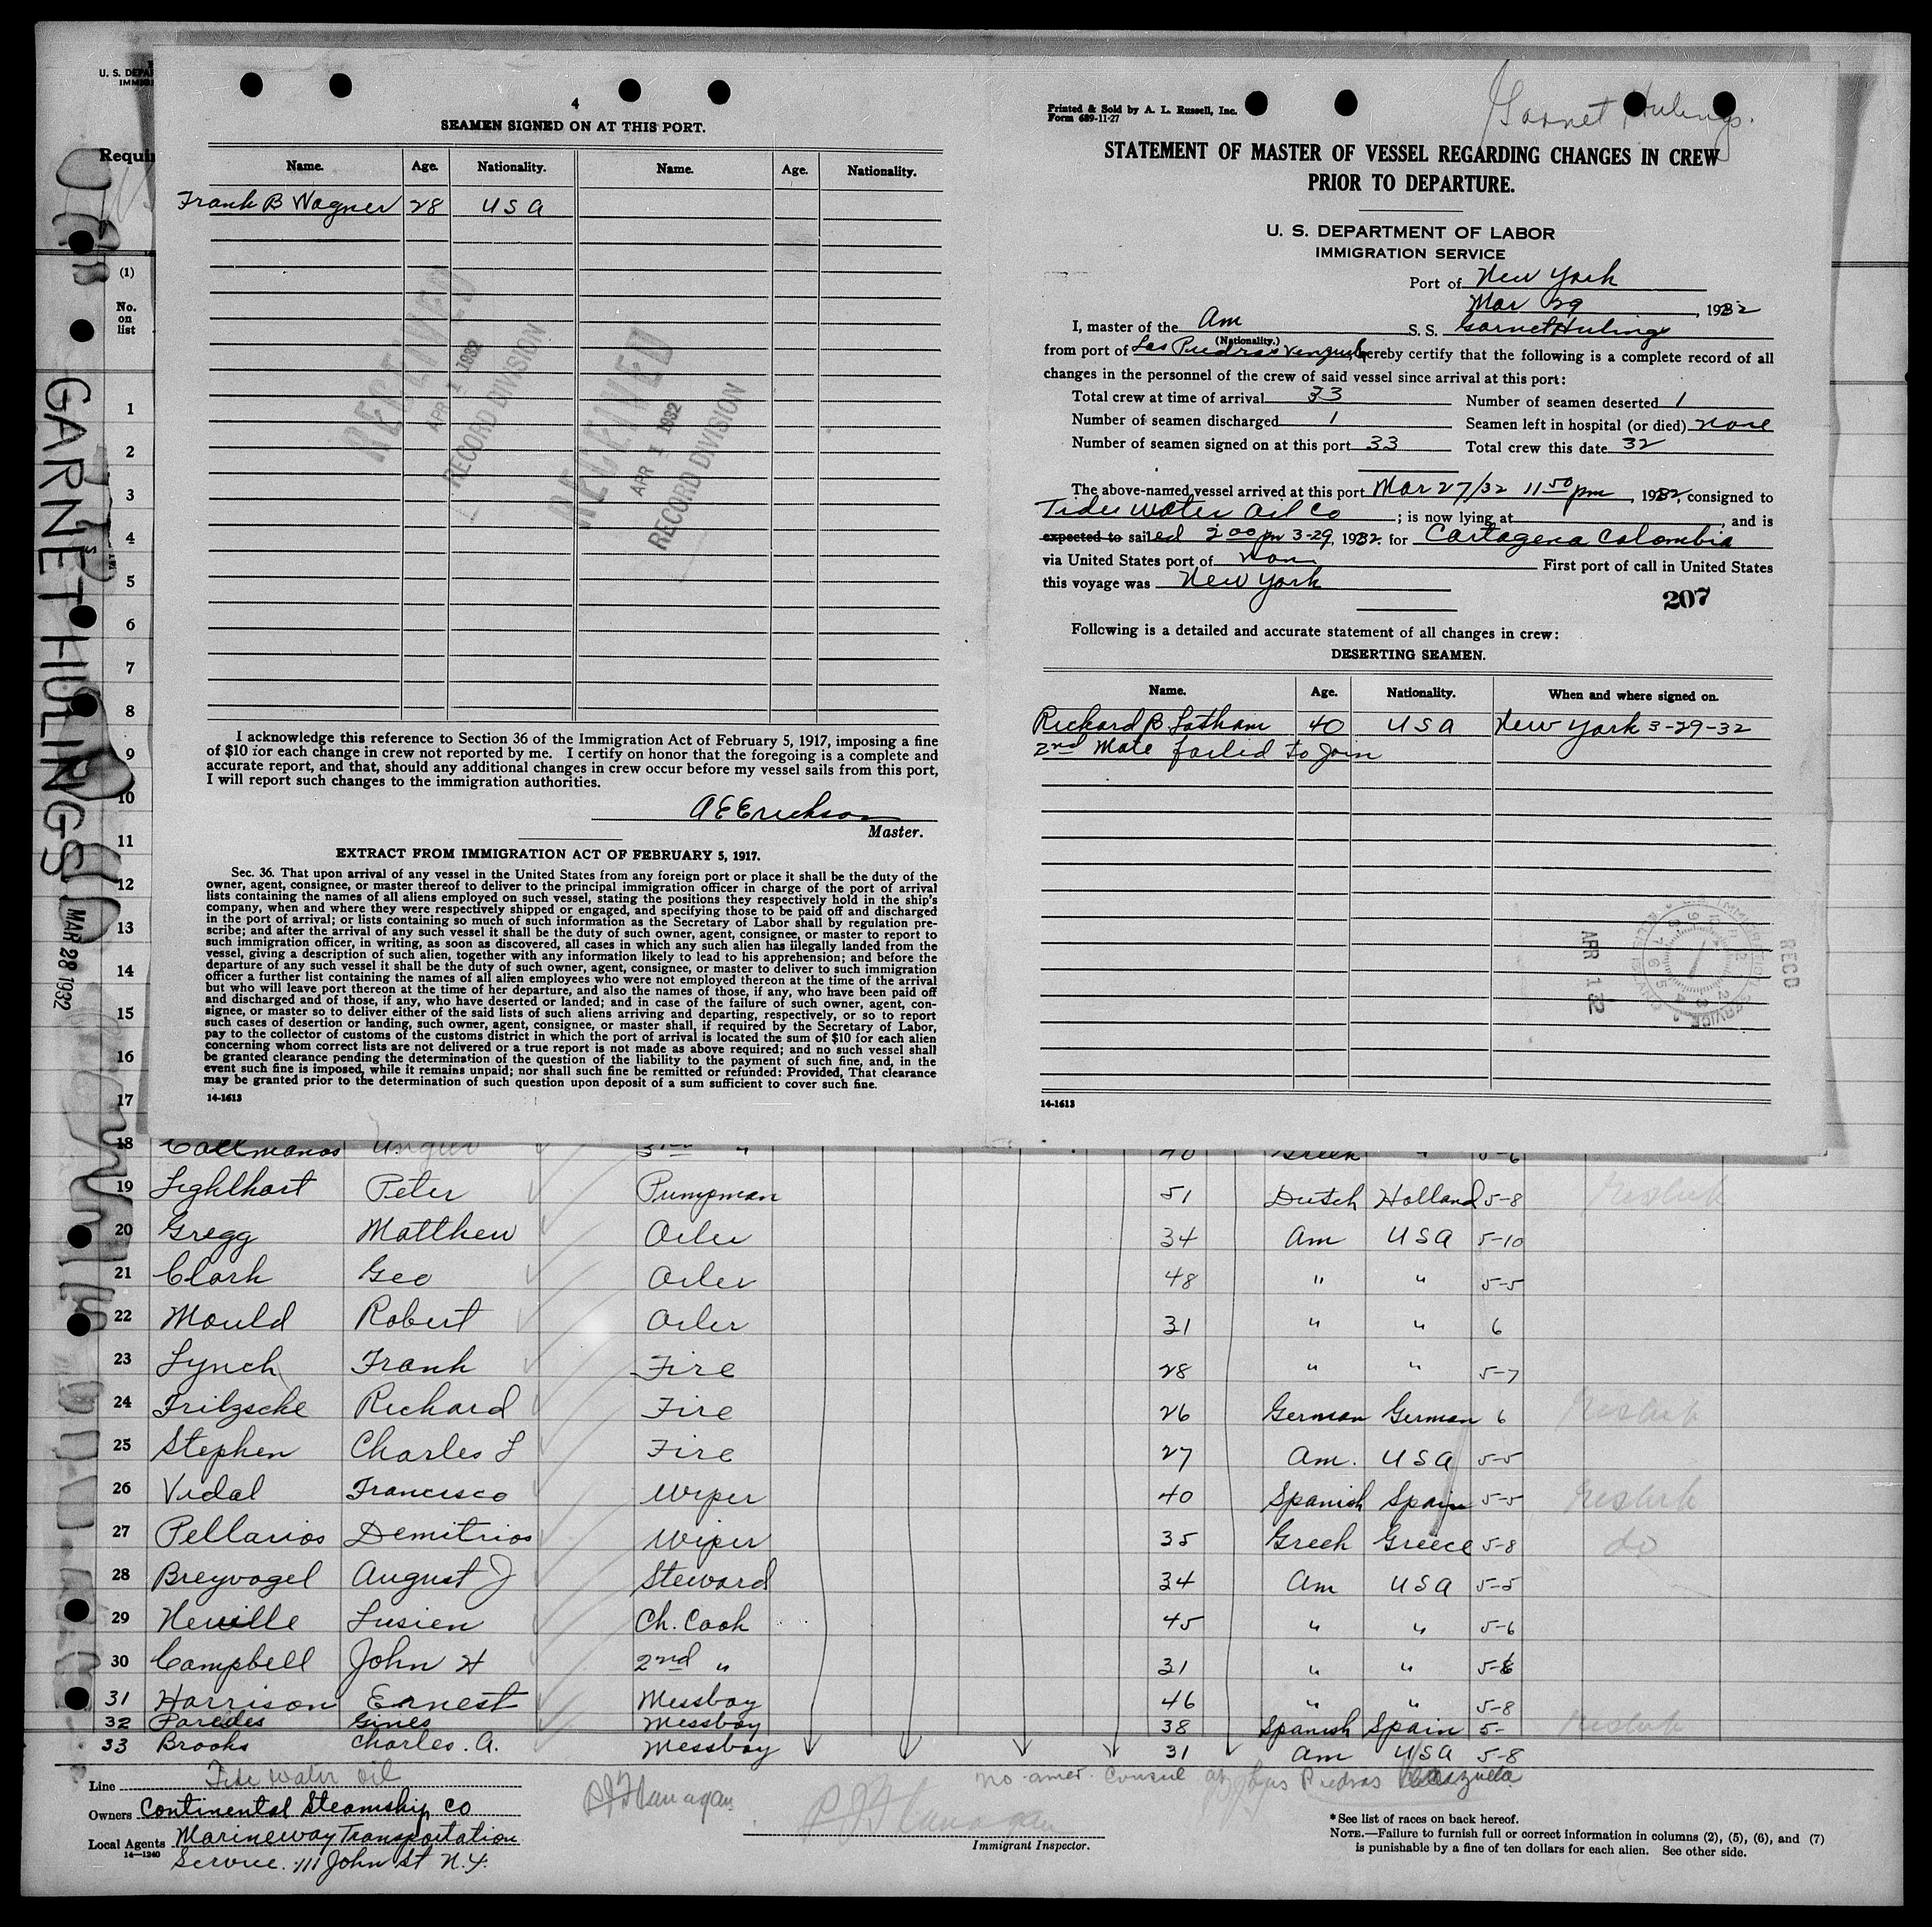 U. S. DEPA
IMMIG
Requir
(1)
No.
on
list
GARNET HULINGS
MAR 28 1932
4
SEAMEN SIGNED ON AT THIS PORT.
Name. Age. Nationality. Name. Age. Nationality.
Frank B Wagner 28 USA
RECEIVED
APR 1 1932
RECORD DIVISION
RECEIVED
APR 1 1932
RECORD DIVISION
I acknowledge this reference to Section 36 of the Immigration Act of February 5, 1917, imposing a fine
of $10 for each change in crew not reported by me. I certify on honor that the foregoing is a complete and
accurate report, and that, should any additional changes in crew occur before my vessel sails from this port,
I will report such changes to the immigration authorities.
A E Erickson
Master.
EXTRACT FROM IMMIGRATION ACT OF FEBRUARY 5, 1917.
Sec. 36. That upon arrival of any vessel in the United States from any foreign port or place it shall be the duty of the
owner, agent, consignee, or master thereof to deliver to the principal immigration officer in charge of the port of arrival
lists containing the names of all aliens employed on such vessel, stating the positions they respectively hold in the ship's
company, when and where they were respectively shipped or engaged, and specifying those to be paid off and discharged
in the port of arrival; or lists containing so much of such information as the Secretary of Labor shall by regulation pre-
scribe; and after the arrival of any such vessel it shall be the duty of such owner, agent, consignee, or master to report to
such immigration officer, in writing, as soon as discovered, all cases in which any such alien has illegally landed from the
vessel, giving a description of such alien, together with any information likely to lead to his apprehension; and before the
departure of any such vessel it shall be the duty of such owner, agent, consignee, or master to deliver to such immigration
officer a further list containing the names of all alien employees who were not employed thereon at the time of the arrival
but who will leave port thereon at the time of her departure, and also the names of those, if any, who have been paid off
and discharged and of those, if any, who have deserted or landed; and in case of the failure of such owner, agent, con-
signee, or master so to deliver either of the said lists of such aliens arriving and departing, respectively, or so to report
such cases of desertion or landing, such owner, agent, consignee, or master shall, if required by the Secretary of Labor,
pay to the collector of customs of the customs district in which the port of arrival is located the sum of $10 for each alien
concerning whom correct lists are not delivered or a true report is not made as above required; and no such vessel shall
be granted clearance pending the determination of the question of the liability to the payment of such fine, and, in the
event such fine is imposed, while it remains unpaid; nor shall such fine be remitted or refunded: Provided, That clearance
may be granted prior to the determination of such question upon deposit of a sum sufficient to cover such fine.
14-1613
Printed & Sold by A. L. Russell, Inc.
Form 689-11-27
Garnet Hulings.
STATEMENT OF MASTER OF VESSEL REGARDING CHANGES IN CREW
PRIOR TO DEPARTURE.
U. S. DEPARTMENT OF LABOR
IMMIGRATION SERVICE
Port of New York
Mar 29, 1932
I, master of the Am S. S. Garnet Hulings
(Nationality.)
from port of Las Piedras hereby certify that the following is a complete record of all
changes in the personnel of the crew of said vessel since arrival at this port:
Total crew at time of arrival 33 Number of seamen deserted 1
Number of seamen discharged 1 Seamen left in hospital (or died) none
Number of seamen signed on at this port 33 Total crew this date 32
The above-named vessel arrived at this port Mar 27/32 11 50 pm, 1932, consigned to
Tide Water Oil Co ; is now lying at , and is
expected to sailed 2 00 pm 3-29, 1932 for Cartagena Colombia
via United States port of First port of call in United States
this voyage was New York
207
Following is a detailed and accurate statement of all changes in crew:
DESERTING SEAMEN.
Name. Age. Nationality. When and where signed on.
Richard B. Latham 40 USA New York 3-29-32
2nd Mate failed to Join
RECD
APR 1 32
14-1613
1
2
3
4
5
6
7
8
9
10
11
12
13
14
15
16
17
18 40 Greek " 5-6
19 Lighlhart Peter Pumpman 51 Dutch Holland 5-8
20 Gregg Matthew Oiler 34 Am USA 5-10
21 Clark Geo Oiler 48 " " 5-5
22 Mould Robert Oiler 31 " " 6
23 Lynch Frank Fire 28 " " 5-7
24 Fritzsche Richard Fire 26 German German 6
25 Stephen Charles L Fire 27 Am. USA 5-5
26 Vidal Francisco Wiper 40 Spanish Spain 5-5
27 Pellarios Demitrios Wiper 35 Greek Greece 5-8 do
28 Breyvogel August J Steward 34 Am USA 5-5
29 Neville Lusien Ch. Cook 45 " " 5-6
30 Campbell John H 2nd " 31 " " 5-6
31 Harrison Ernest Messboy 46 " " 5-8
32 Paredes Gines Messboy 38 Spanish Spain 5-
33 Brooks Charles. A. Messboy 31 Am USA 5-8
no amer. Consul at Las Piedras Venezuela
Line Tide Water Oil
Owners Continental Steamship Co
Local Agents Marineway Transportation
14-1240
Service. 111 John St N.Y.
P J Flanagan
P J Flanagan
Immigrant Inspector.
*See list of races on back hereof.
NOTE.—Failure to furnish full or correct information in columns (2), (5), (6), and (7)
is punishable by a fine of ten dollars for each alien. See other side.